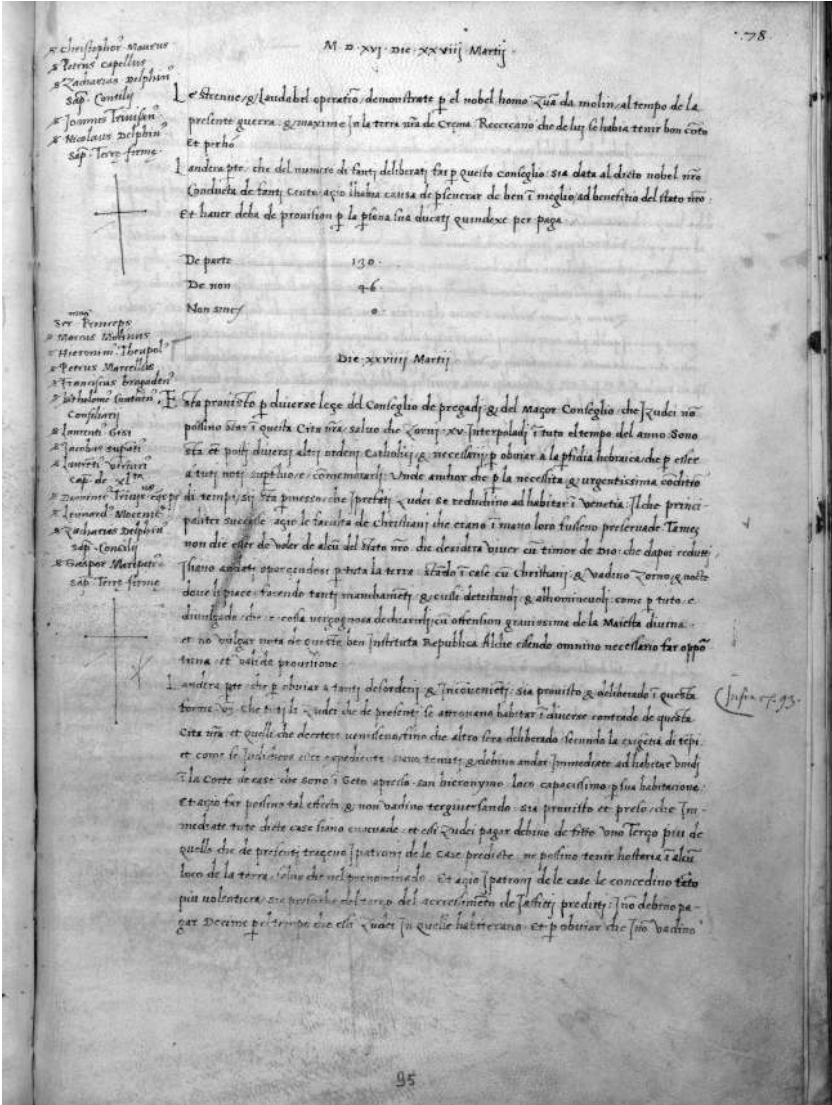 78
M·D·xvj·Die·xxviij·Martij·
s Christophorꝰ Maurus
s Petrus Capellus
s Zacharias Delphinꝰ
Sap̃· Consilij
s Joannes Trivisanꝰ
s Nicolaus Delphinꝰ
Sap̃· Terrę firmę·
Le strenue, & laudabel operatiõ, demonstrate p̱ el nobel homo Zũa da molin, al tempo de la
presente guerra, & maxime In la terra nr̃a de Crema
Et perho
Landera pte, che del numero di fanti deliberati far p̱ questo conseglio, sia data al dicto nobel nr̃o
Conducta de fanti Cento, acio lhabia causa de p̱seuerar de ben ĩ meglio, ad benefitio del stato nr̃o·
Et hauer deba de prouision p̱ la p̱sona sua ducatj quindexe per paga·
De parte 130·
De non 46·
Non sincerj 0·
Die·xxviiij Martij
Ser.mus Princeps
s Marcus Molinus
s Hieronimꝰ Theupolꝰ
s Petrus Marcellus
s Franciscus bragadenꝰ
Consiliarij
s Laurentiꝰ
s Jacobus
Cap. de xl.ta
s Dominicꝰ Trivisꝰ
s Leonardꝰ Mocenicꝰ
s Zacharias Delphinꝰ
Sap̃· Consilij
s Gaspar Maripetrꝰ
Sap̃· Terrę firmę
Esta prouisto p̱ diuerse leze del Conseglio de pregadi, & del Mazor Conseglio, che I zudei nõ
possino star ĩ questa Cita nr̃a, saluo che Zorni·xv·Interpoladi ĩ tuto el tempo del anno: Sono
sta et postj diuersi altri ordeni Catholicj, & necessarij p̱ obuiar a la p̱fidia hebraica, che p̱ esser
a tuti noti, sup̱fluo e, comemorarli: Unde anchor che p̱ la necessita, & urgentissima cõditiõ
di tempi, si sta p̱messo, che I pretati Zudei se reduchino ad habitar ĩ Venetia: Il che princi-
paliter successe, acio le faculta de Christiani che erano ĩ mano loro fusseno preseruade· Tamen
non die esser de voler de alcũ del stato nr̃o, che desidera viuer cũ timor de Dio: che dapoi redutti
Ihano andati sparzendose p̱ tuta la terra: stãdo ĩ case cũ Christiani: & vadino Zorno, & nocte
doue li piace: facendo tanti manchamẽti, & cussi detestandi, & abhomineuoli: come p̱ tuto, e
diuulgado, che, e, cossa vergognosa dechiarirli, cũ offension grauissima de la Maiesta diuina·
et nõ vulgar nota de queste ben Instituta Republica Al che essendo omnino necessario far oppõ
tuna, et valida prouisione·
Landera pte, che p̱ obuiar a tanti desordeni, & Incõuenietj: sia prouisto, & deliberado ĩ questa
forma, vz· Che tuti li Zudei che de presenti se attrouano habitar ĩ diuerse contrade de questa
Cita nr̃a, et quelli che de cetero venisseno, fino che altro sera deliberado, secundo la exigẽtia di tẽpi
et come se Iudichera esser expediente, siano tenuti, & debino andar Immediate ad habitar vnidi
ĩ la Corte de case, che sono ĩ Geto apresso san hieronymo, loco capacissimo p̱ sua habitatione:
Et acio far possino tal effecto, & non vadino tergiuersando: sia prouisto et preso, che Im-
mediate tute dicte case siano euacuade, et essi Zudei pagar debino de fitto vno Terzo piu de
quello che de presenti trazeno I patroni de le case predicte, ne possino tenir hostaria ĩ alcũ
loco de la terra, saluo che nel prenominado· Et acio I patroni de le case le concedino tãto
piu volentiera, sia preso che del terzo del accrescimẽto de I affictj predicti: Inõ debino pa-
gar Decime p̱ el tempo che essi Zudei In quelle habiterano· Et p̱ obuiar che Inõ vadino
Infra cʒ. 93.
95